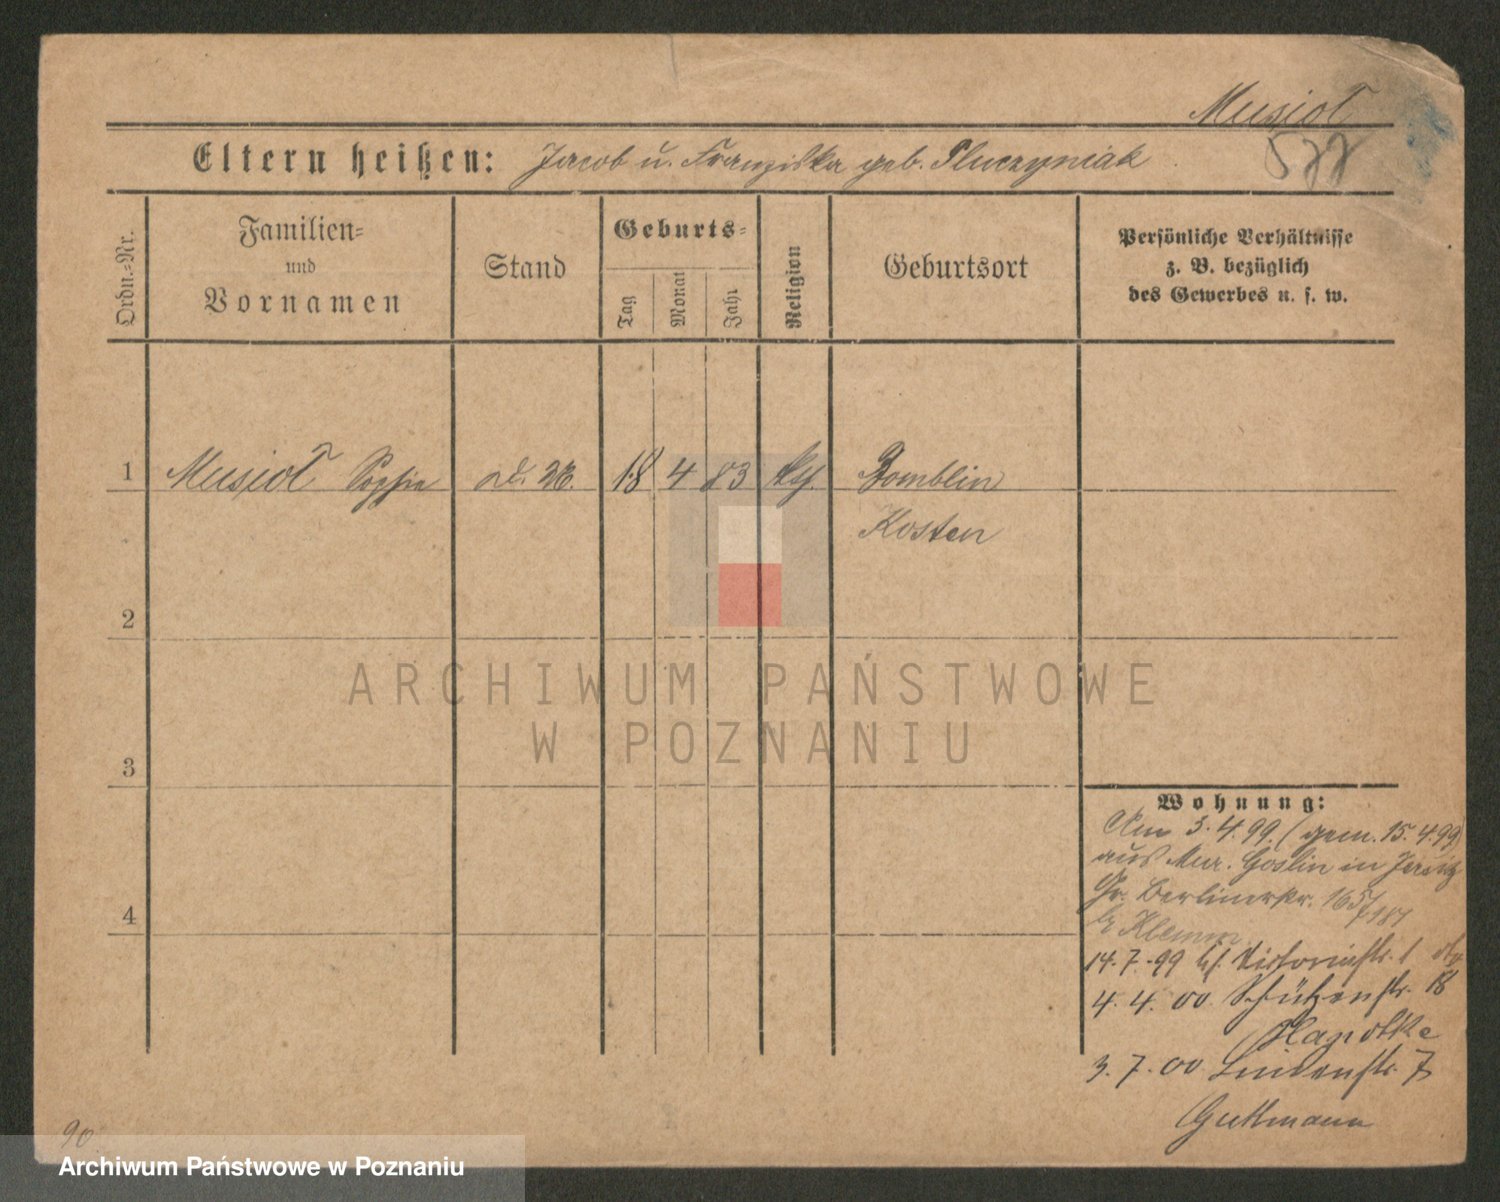 Musiol
577
Eltern heißen: Jacob u. Franziska geb. Pluczyniak
Ordn.-Nr.
Familien-
und
Vornamen
Stand
Geburts-
Tag
Monat
Jahr
Religion
Geburtsort
Persönliche Verhältnisse
z. B. bezüglich
des Gewerbes u. s. w.
1 Musiol Sophie 18 4 83 Bomblin
Kosten
2
3
4
Wohnung:
Am 3.4.99. (gem. 15.4.99)
aus Mur. Goslin in Jersitz
Gr. Berlinerstr. 165/
Klemm
14.7.99 Victoriastr. 1
4.4.00 Schützenstr. 18
3.7.00 Lindenstr. 7
Guttmann
90
ARCHIWUM PAŃSTWOWE
W POZNANIU
Archiwum Państwowe w Poznaniu